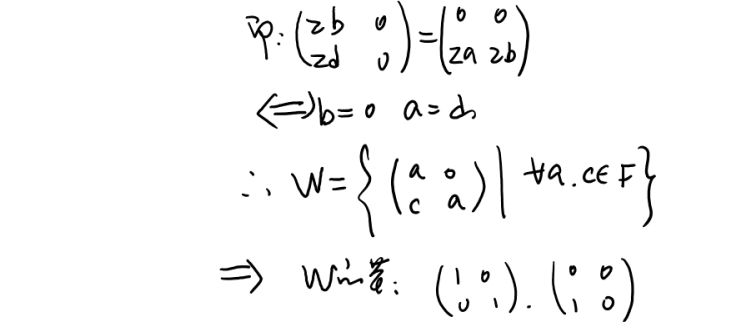 即: \begin{pmatrix} 2b & 0 \\ 2d & 0 \end{pmatrix} = \begin{pmatrix} 0 & 0 \\ 2a & 2b \end{pmatrix}
⟺ b=0 a=d
∴ W=\left\{ \begin{pmatrix} a & 0 \\ c & a \end{pmatrix} \middle| ∀a.c∈F \right\}
⟹ W的基: \begin{pmatrix} 1 & 0 \\ 0 & 1 \end{pmatrix}. \begin{pmatrix} 0 & 0 \\ 1 & 0 \end{pmatrix}